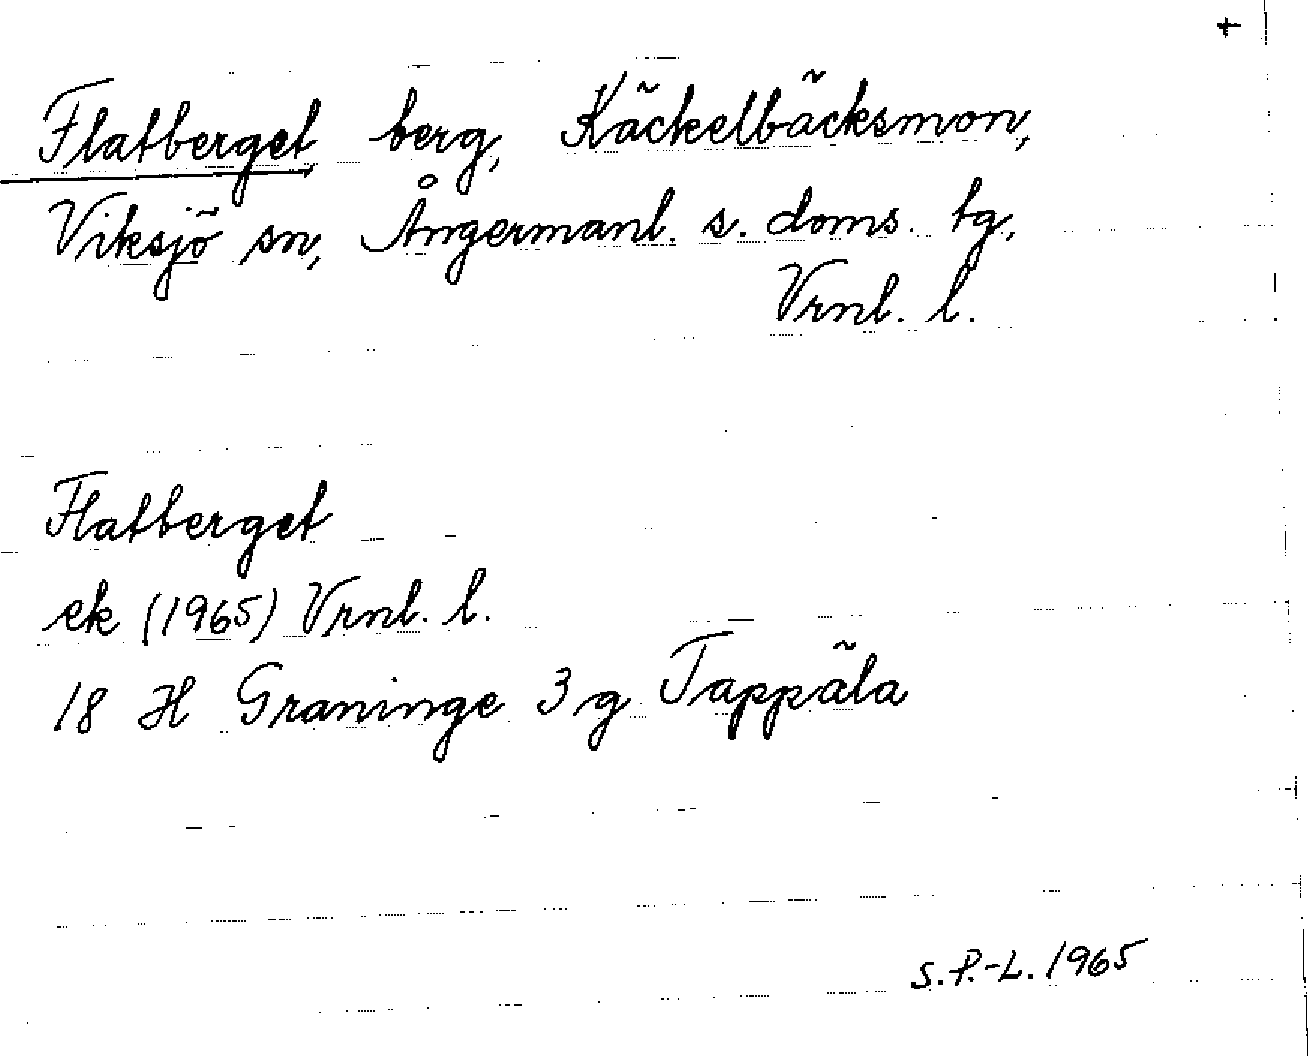 +
Flatberget, berg, Käckelbäcksmon,
Viksjö sn, Ångermanl. s. doms. tg,
Vrnl. l.
Flatberget
ek (1965) Vrnl. l.
18 H Graninge 3 g Tappäla
S.P.-L. 1965